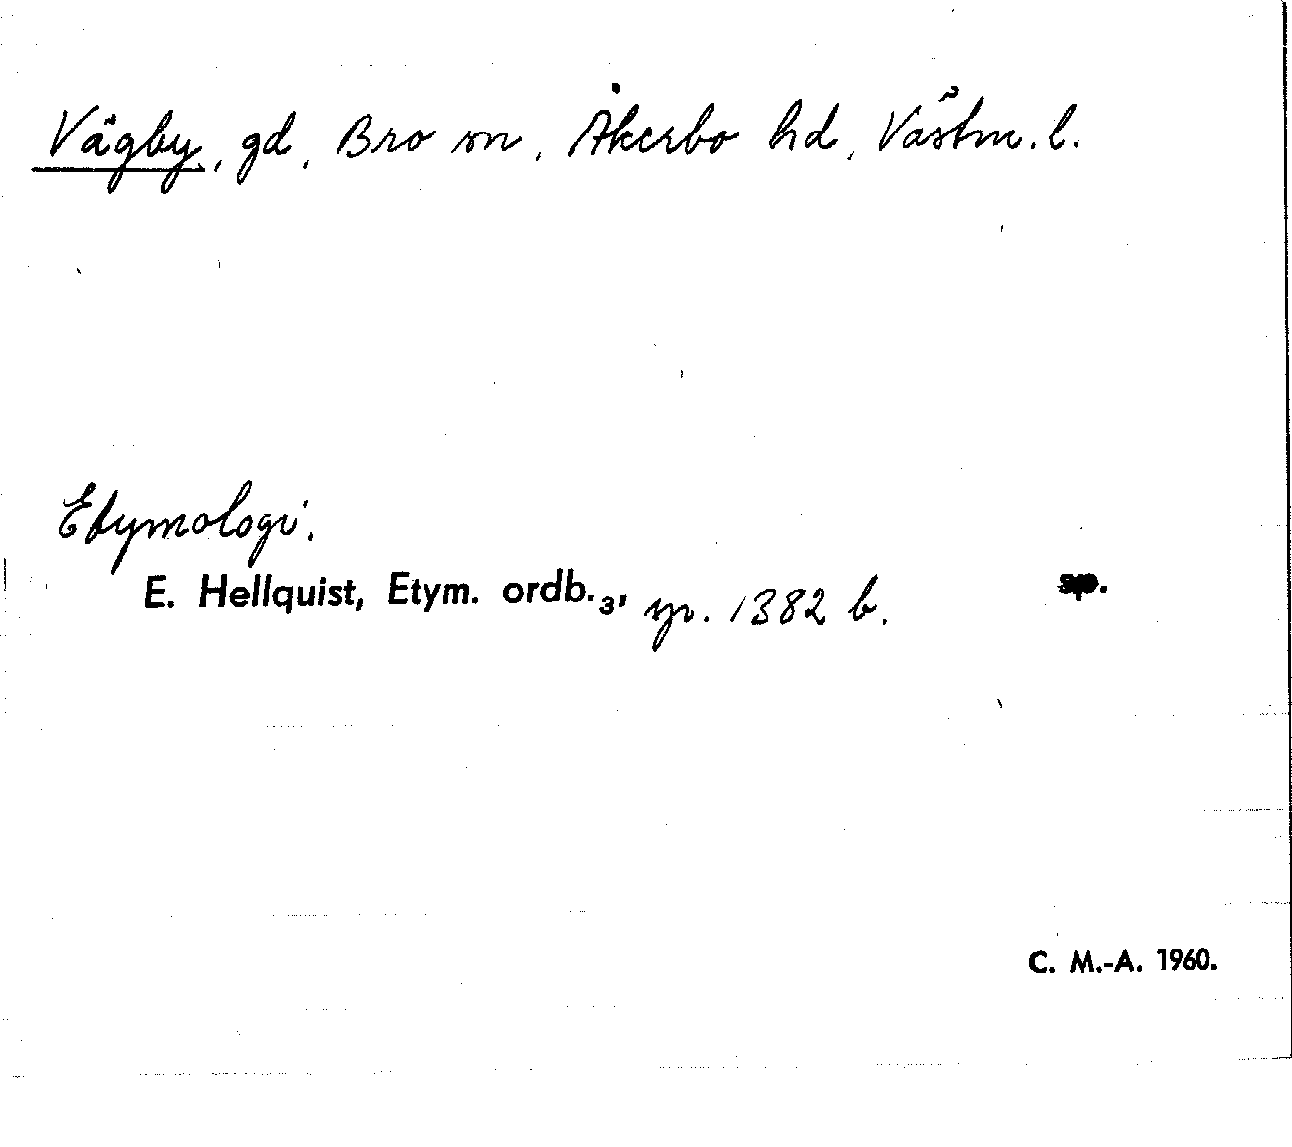 Vägby, gd, Bro sn, Åkerbo hd, Västm. l.
Etymologi.
E. Hellquist, Etym. ordb.₃, sp. 1382 b.
sp.
C. M.-A. 1960.